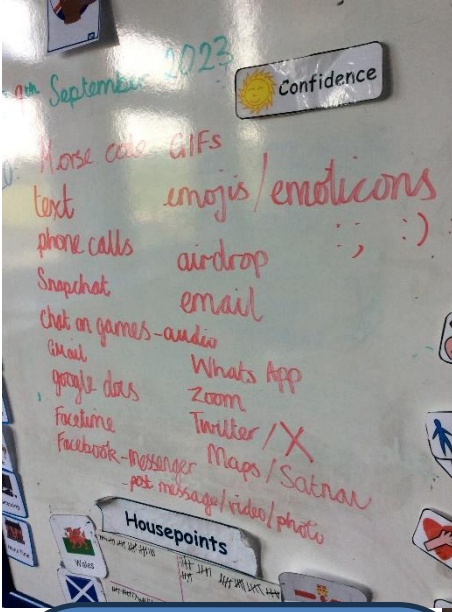 September 2023
Confidence
Morse code GIFs
text emojis/emoticons
:, :)
phone calls airdrop
Snapchat email
chat on games-audio
Gmail Whats App
google docs Zoom
Facetime Twitter/X
Facebook-messenger Maps/Satnav
-post message/video/photo
Housepoints
Wales